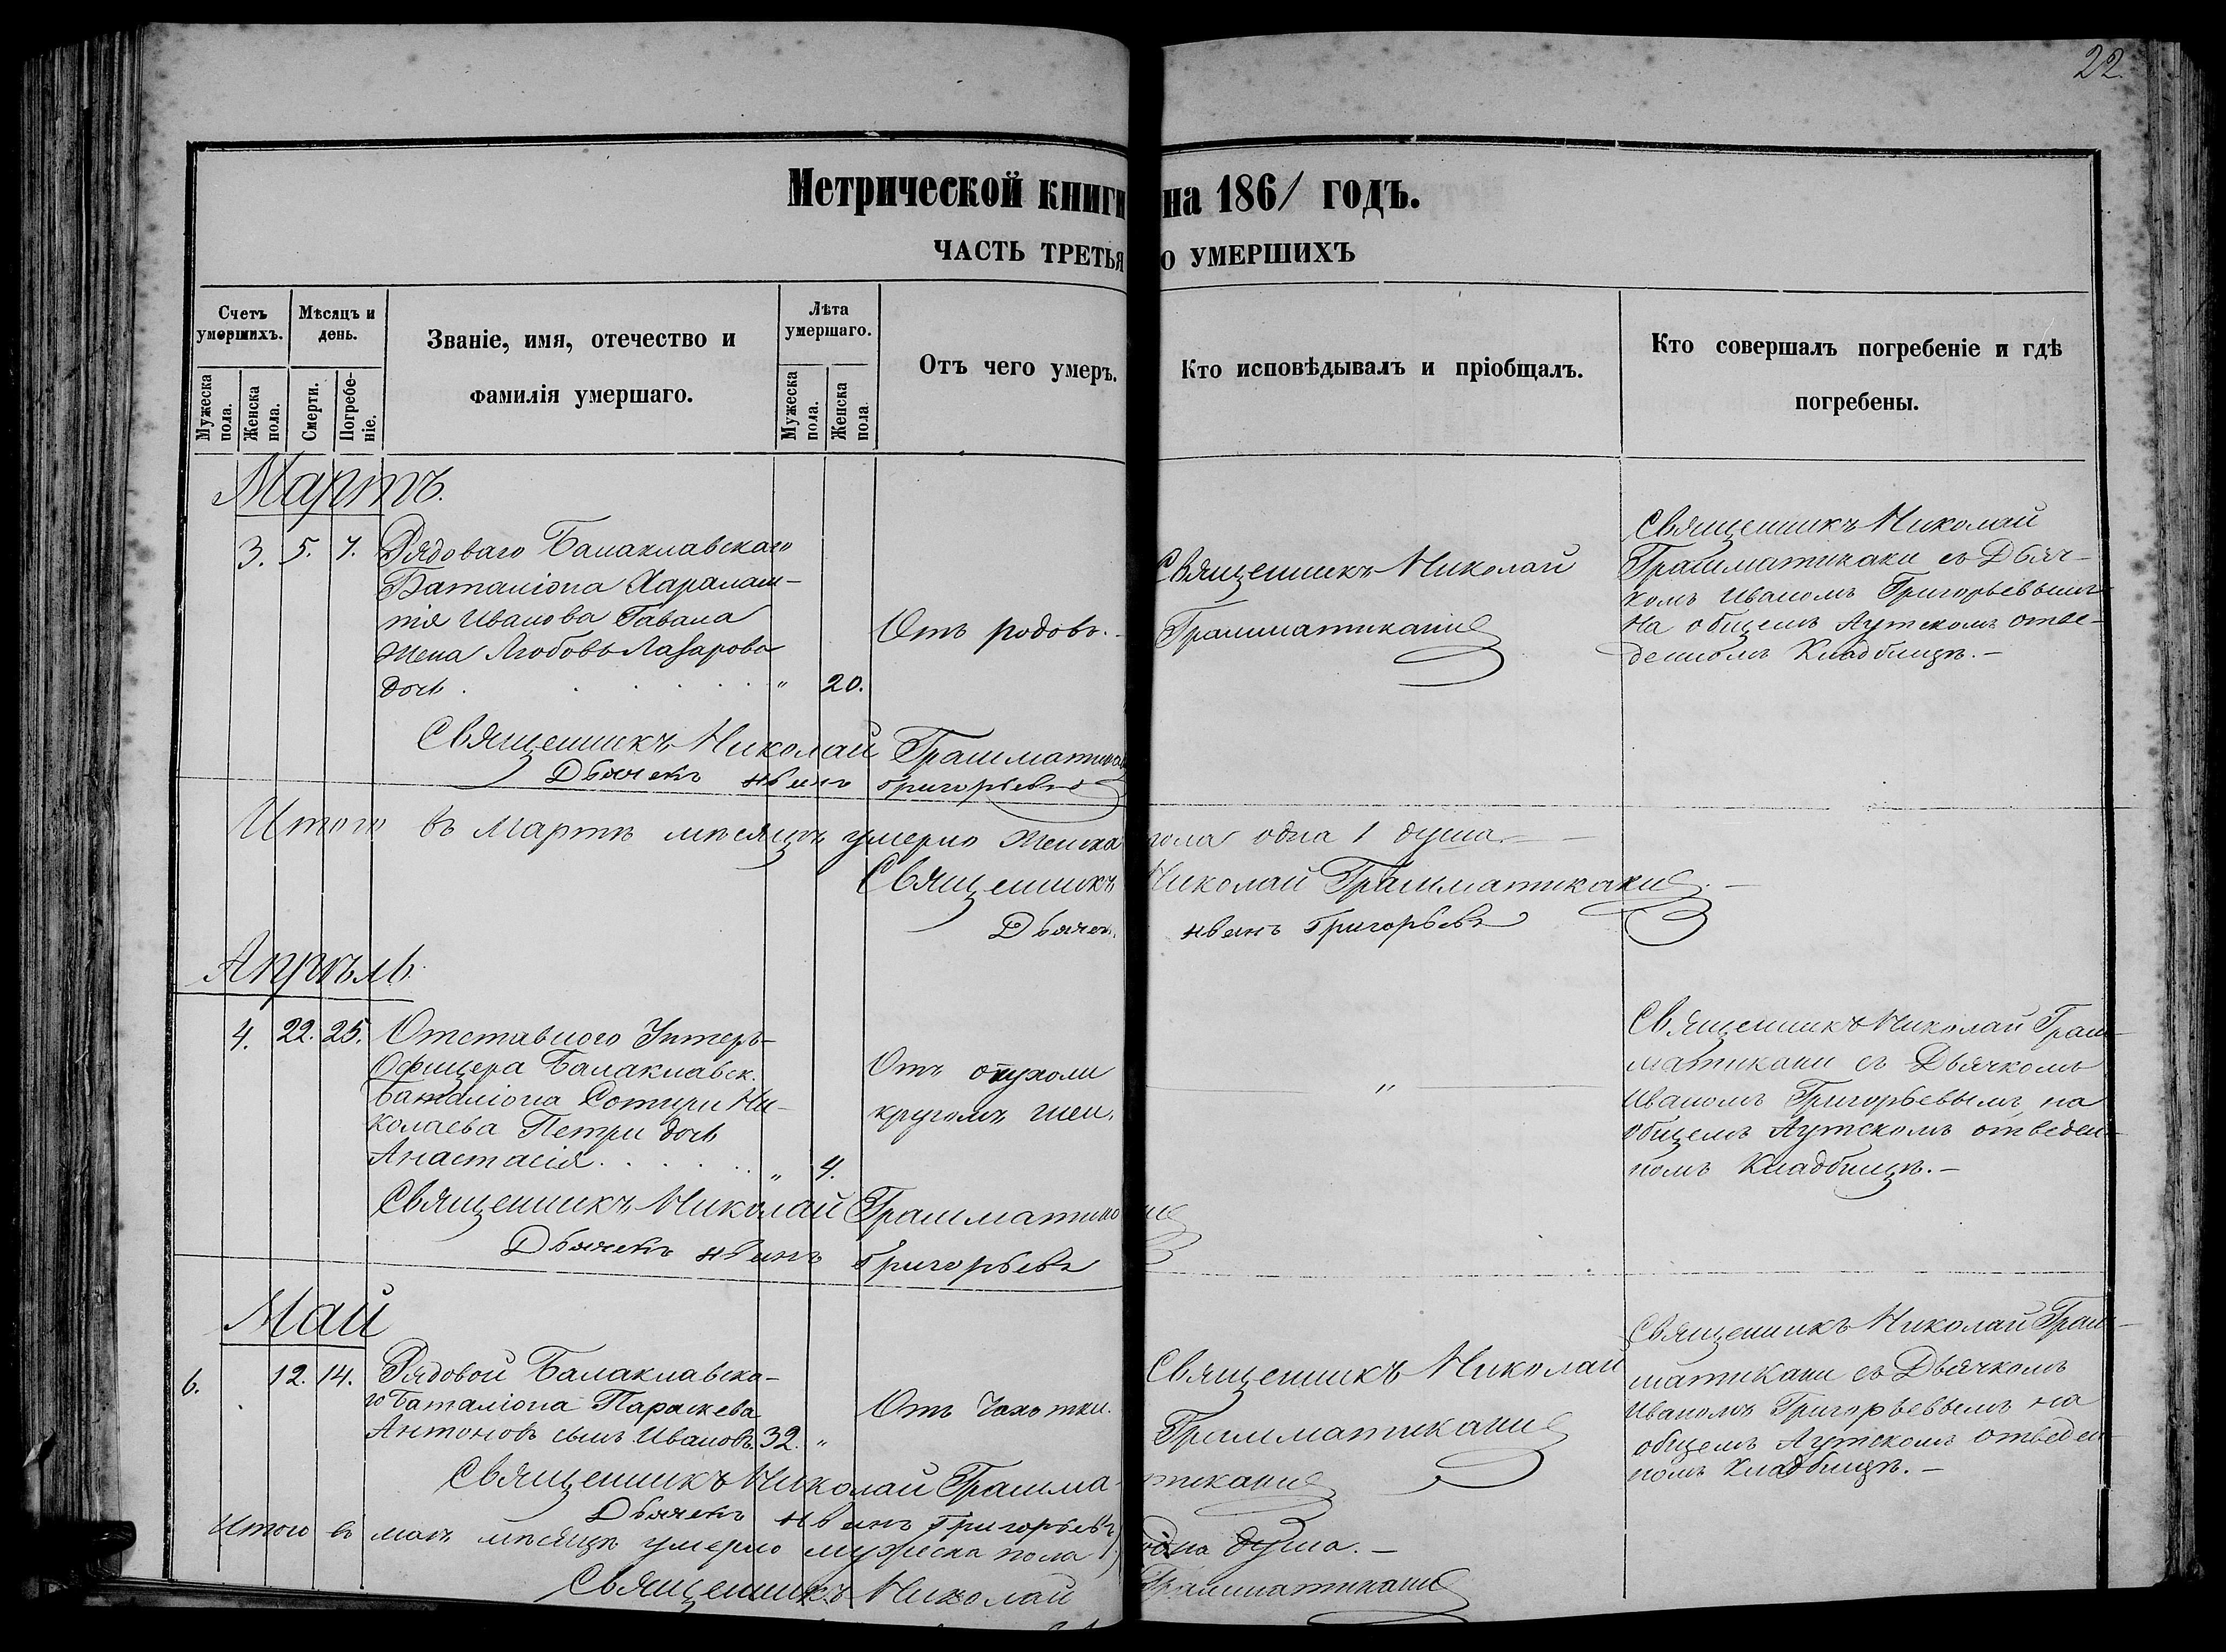 22.
Метрической книги на 1861 годъ.
ЧАСТЬ ТРЕТЬЯ О УМЕРШИХЪ
Счетъ умершихъ.
Мѣсяцъ и день.
Званіе, имя, отечество и фамилія умершаго.
Лѣта умершаго.
Отъ чего умеръ.
Кто исповѣдывалъ и пріобщалъ.
Кто совершалъ погребеніе и гдѣ погребены.
Мужеска пола.
Женска пола.
Смерти.
Погребе-ніе.
Мужеска пола.
Женска пола.
Мартъ.
3. 5. 7. Рядоваго Балаклавскаго
Баталіона Харалам-
пія Иванова Гавала
жена Любовь Лазарова
дочь . . . . . . . " 20.
Отъ родовъ.
Священникъ Николай
Грамматикаки
Священникъ Николай
Грамматикаки съ Дьяч-
комъ Иваномъ Григорьевымъ
на общемъ Аутскомъ отве-
денномъ Кладбищѣ.
Священникъ Николай Грамматикаки
Дьячекъ Иванъ Григорьевъ
Итого въ Мартѣ мѣсяцѣ умерло женска пола одна 1 душа.
Священникъ Николай Грамматикаки.
Дьячек. Иванъ Григорьевъ
Апрѣль.
4. 22. 25. Отставного Унтеръ-
Офицера Балаклавск.
Баталіона Сотири Ни-
колаева Петри дочь
Анастасія. . . . . . " 4.
Отъ опухоли
кругомъ шеи.
"
Священникъ Николай Грам-
матикаки съ Дьячкомъ
Иваномъ Григорьевымъ, на
общемъ Аутскомъ отведен-
номъ Кладбищѣ.
Священникъ Николай Грамматикаки
Дьячекъ Иванъ Григорьевъ
Май
6. 12. 14. Рядовой Балаклавска-
го Баталіона Параскева
Антоновъ сынъ Ивановъ. 32. "
Отъ Чахотки.
Священникъ Николай
Грамматикаки
Священникъ Николай Грам-
матикаки съ Дьячкомъ
Иваномъ Григорьевымъ на
общемъ Аутскомъ отведен-
номъ Кладбищѣ.
Священникъ Николай Грамматикаки
Дьячекъ Иванъ Григорьевъ
Итого въ маѣ мѣсяцѣ умерло мужеска пола 1) одна душа.
Священникъ Николай Грамматикаки